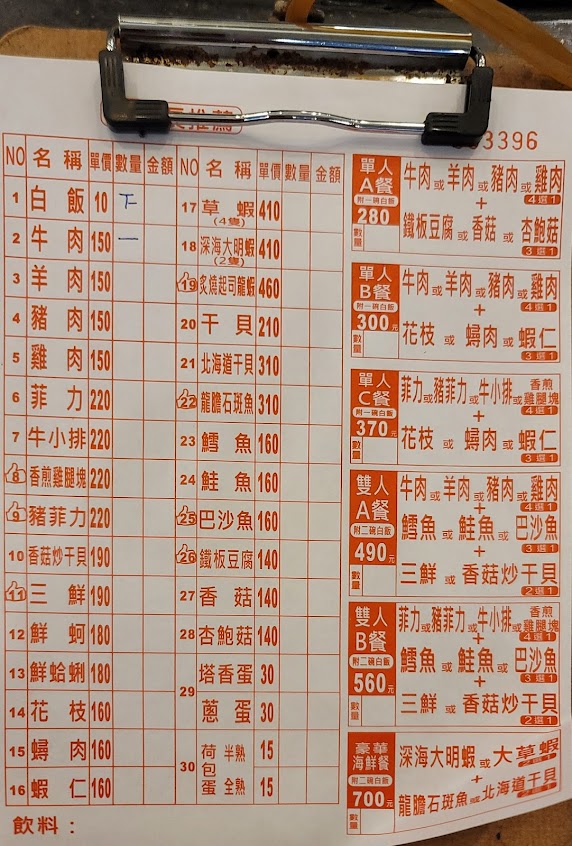 推薦
3396
NO 名稱 單價 數量 金額
1 白飯 10 下
2 牛肉 150 一
3 羊肉 150
4 豬肉 150
5 雞肉 150
6 菲力 220
7 牛小排 220
8 香煎雞腿塊 220
9 豬菲力 220
10 香菇炒干貝 190
11 三鮮 190
12 鮮蚵 180
13 鮮蛤蜊 180
14 花枝 160
15 蟳肉 160
16 蝦仁 160
飲料：
NO 名稱 單價 數量 金額
17 草蝦(4隻) 410
18 深海大明蝦(2隻) 410
19 炙燒起司龍蝦 460
20 干貝 210
21 北海道干貝 310
22 龍膽石斑魚 310
23 鱈魚 160
24 鮭魚 160
25 巴沙魚 160
26 鐵板豆腐 140
27 香菇 140
28 杏鮑菇 140
29 塔香蛋 30
蔥蛋 30
30 荷包蛋 半熟 15
全熟 15
單人A餐 附一碗白飯 280 數量
牛肉或羊肉或豬肉或雞肉 4選1
+
鐵板豆腐或香菇或杏鮑菇 3選1
單人B餐 附一碗白飯 300元 數量
牛肉或羊肉或豬肉或雞肉 4選1
+
花枝或蟳肉或蝦仁 3選1
單人C餐 附一碗白飯 370元 數量
菲力或豬菲力或牛小排或香煎雞腿塊 4選1
+
花枝或蟳肉或蝦仁 3選1
雙人A餐 附二碗白飯 490元 數量
牛肉或羊肉或豬肉或雞肉 4選1
+
鱈魚或鮭魚或巴沙魚 3選1
+
三鮮或香菇炒干貝 2選1
雙人B餐 附二碗白飯 560元 數量
菲力或豬菲力或牛小排或香煎雞腿塊 4選1
+
鱈魚或鮭魚或巴沙魚 3選1
+
三鮮或香菇炒干貝 2選1
豪華海鮮餐 附二碗白飯 700元 數量
深海大明蝦或大草蝦 2選1
+
龍膽石斑魚或北海道干貝 2選1